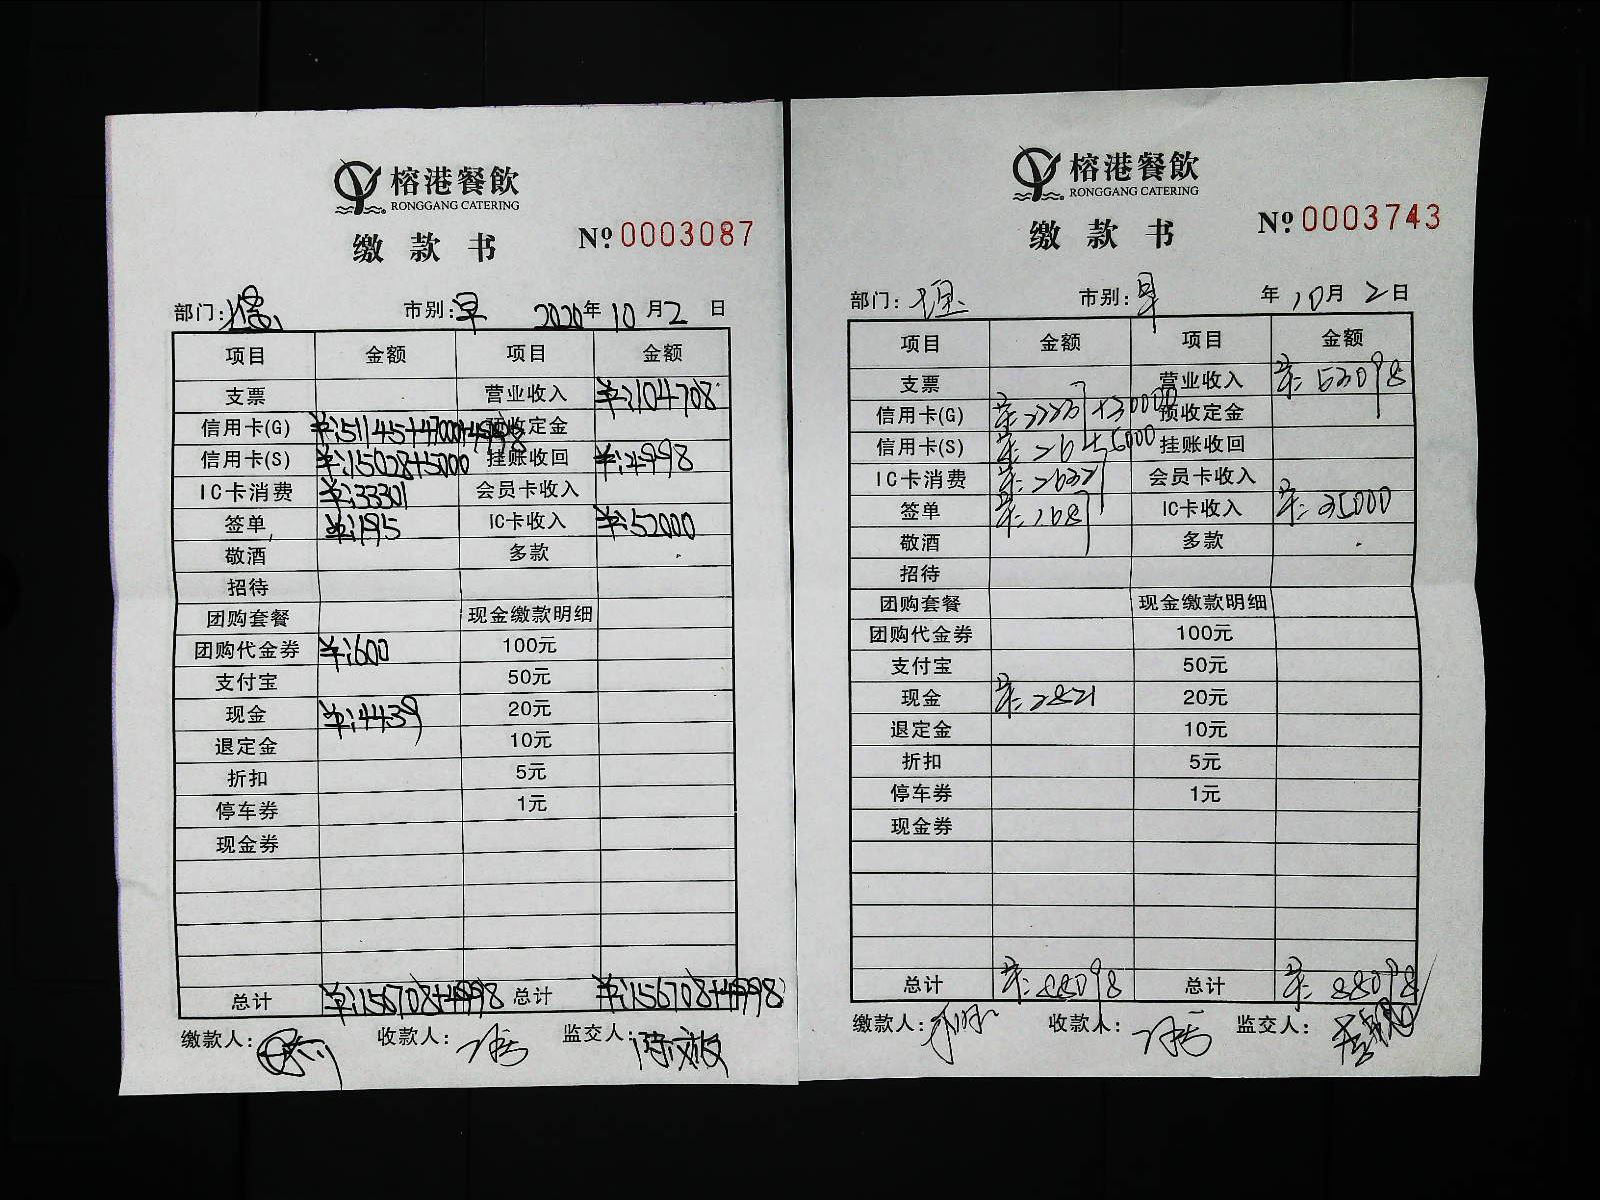 榕港餐飲
RONGGANG CATERING
缴款书 № 0003087
部门: 市别:早 2020年10月2日
项目 金额 项目 金额
支票 营业收入 ¥:104708
信用卡(G) ¥:51145+47000+4998 预收定金
信用卡(S) ¥:15028+5000 挂账收回 ¥:4998
IC卡消费 ¥:33301 会员卡收入
签单 ¥:195 IC卡收入 ¥:52000
敬酒 多款
招待
团购套餐 现金缴款明细
团购代金券 ¥:600 100元
支付宝 50元
现金 ¥:4439 20元
退定金 10元
折扣 5元
停车券 1元
现金券
总计 ¥:156708+4998 总计 ¥:156708+4998
缴款人: 收款人: 监交人:
榕港餐飲
RONGGANG CATERING
缴款书 № 0003743
部门: 市别:早 年10月2日
项目 金额 项目 金额
支票 营业收入 ¥:53098
信用卡(G) 预收定金
信用卡(S) 挂账收回
IC卡消费 会员卡收入
签单 IC卡收入 ¥:35000
敬酒 多款
招待
团购套餐 现金缴款明细
团购代金券 100元
支付宝 50元
现金 ¥:2821 20元
退定金 10元
折扣 5元
停车券 1元
现金券
总计 ¥:88098 总计 ¥:88098
缴款人: 收款人: 监交人: